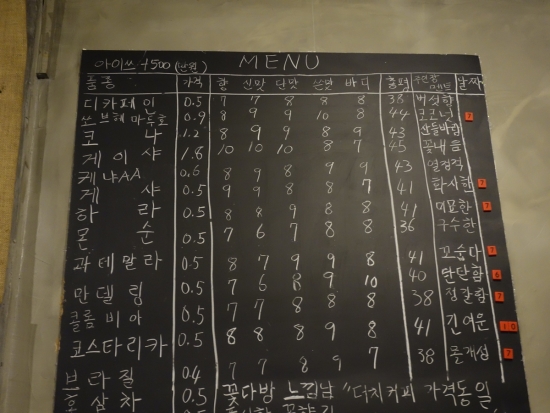 아이쓰 +500 (만원) MENU
품종 가격 향 신맛 단맛 쓴맛 바디 총평 주인장 멘트 날짜
디카페인 0.5 7 7 8 8 8 38 버섯향
쏘브헤 마두호 0.9 8 9 9 10 8 44 코코넛 7
코나 1.2 8 9 9 8 9 43 산들바람
게이샤 1.8 10 10 10 8 7 45 꽃내음
케냐AA 0.6 8 9 8 9 9 43 열정적
게샤 0.5 9 9 8 8 7 41 화사한 7
하라 0.5 8 8 9 8 8 41 미묘한 7
몬순 0.5 7 6 7 8 8 36 구수한
과테말라 0.5 8 7 9 9 8 41 꼬숩다 7
만델링 0.5 7 6 8 9 10 40 단단함 6
콜롬비아 0.5 7 7 8 8 8 38 정갈함 7
코스타리카 0.5 8 8 8 9 8 41 긴여운 10
브라질 0.4 7 7 8 9 7 38 7
홍삼차 0.5 꽃다방 느낌남 "더치커피 가격동일